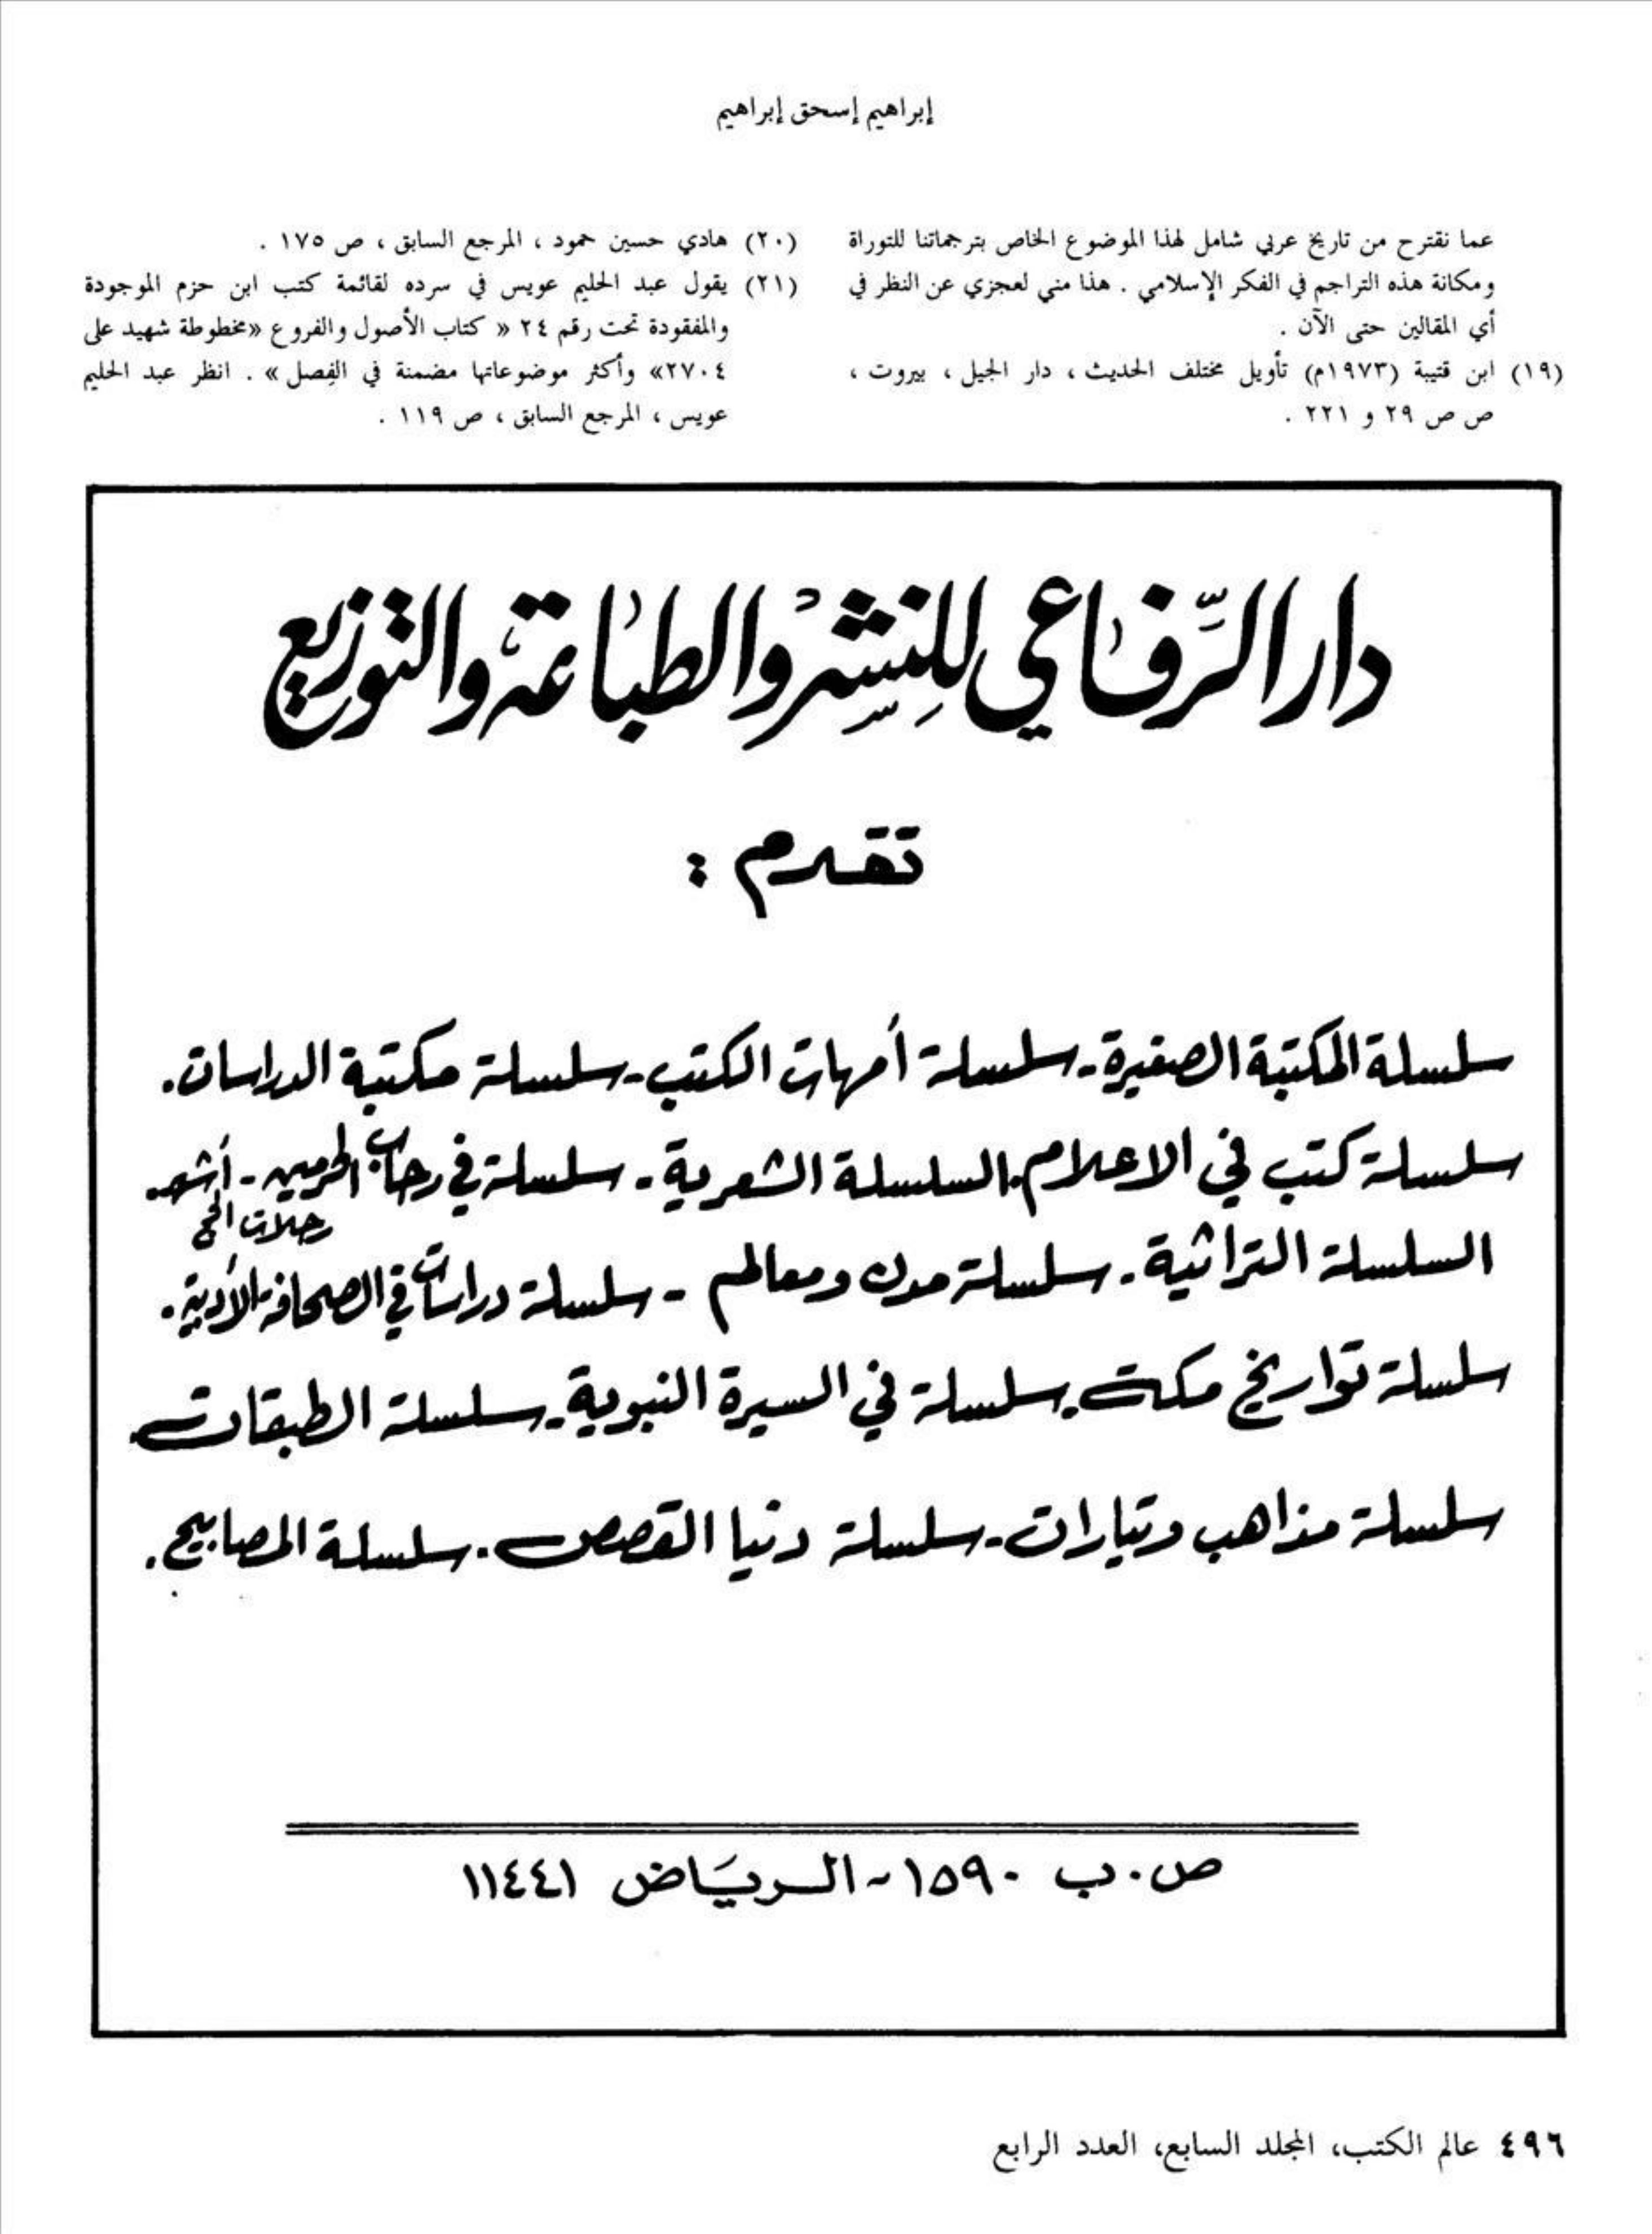 إبراهيم إسحق إبراهيم
عما نقترح من تاريخ عربي شامل لهذا الموضوع الخاص بترجماتنا للتوراة
ومكانة هذه التراجم في الفكر الإسلامي . هذا مني لعجزي عن النظر في
أي المقالين حتى الآن .
(١٩) ابن قتيبة (١٩٧٣م) تأويل مختلف الحديث ، دار الجيل ، بيروت ،
ص ص ٢٩ و ٢٢١ .
(٢٠) هادي حسين حمود ، المرجع السابق ، ص ١٧٥ .
(٢١) يقول عبد الحليم عويس في سرده لقائمة كتب ابن حزم الموجودة
والمفقودة تحت رقم ٢٤ « كتاب الأصول والفروع «مخطوطة شهيد على
٢٧٠٤» وأكثر موضوعاتها مضمنة في الفِصل» . انظر عبد الحليم
عويس ، المرجع السابق ، ص ١١٩ .
دار الرِّفاعي للنِشْر والطباعة والتوزيع
تقدم :
سلسلة المكتبة الصغيرة - سلسلة أمهات الكتب - سلسلة مكتبة الدراسات .
سلسلة كتب في الاعلام . السلسلة الشعرية - سلسلة في رحاب الحرمين - أشهر
رحلات الحج
السلسلة التراثية - سلسلة مدن ومعالم - سلسلة دراسات في الصحافة الأدبية .
سلسلة تواريخ مكة - سلسلة في السيرة النبوية - سلسلة الطبقات
سلسلة مذاهب وتيارات - سلسلة دنيا القصص - سلسلة المصابيح .
ص . ب ١٥٩٠ - الريَاض ١١٤٤١
٤٩٦ عالم الكتب، المجلد السابع، العدد الرابع